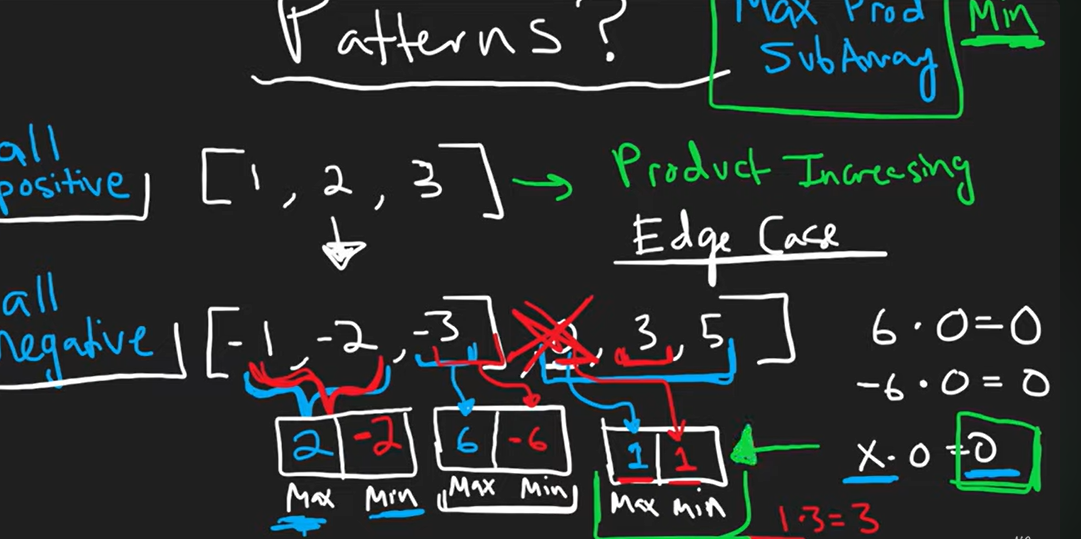 Patterns?
Max Prod
SubArray
Min
all
positive
[1, 2, 3] → Product Increasing
Edge Case
all
negative
[-1, -2, -3], 0, 3, 5]
6 · 0 = 0
-6 · 0 = 0
x · 0 = 0
2 -2
Max Min
6 -6
Max Min
1 1
Max Min
1·3=3